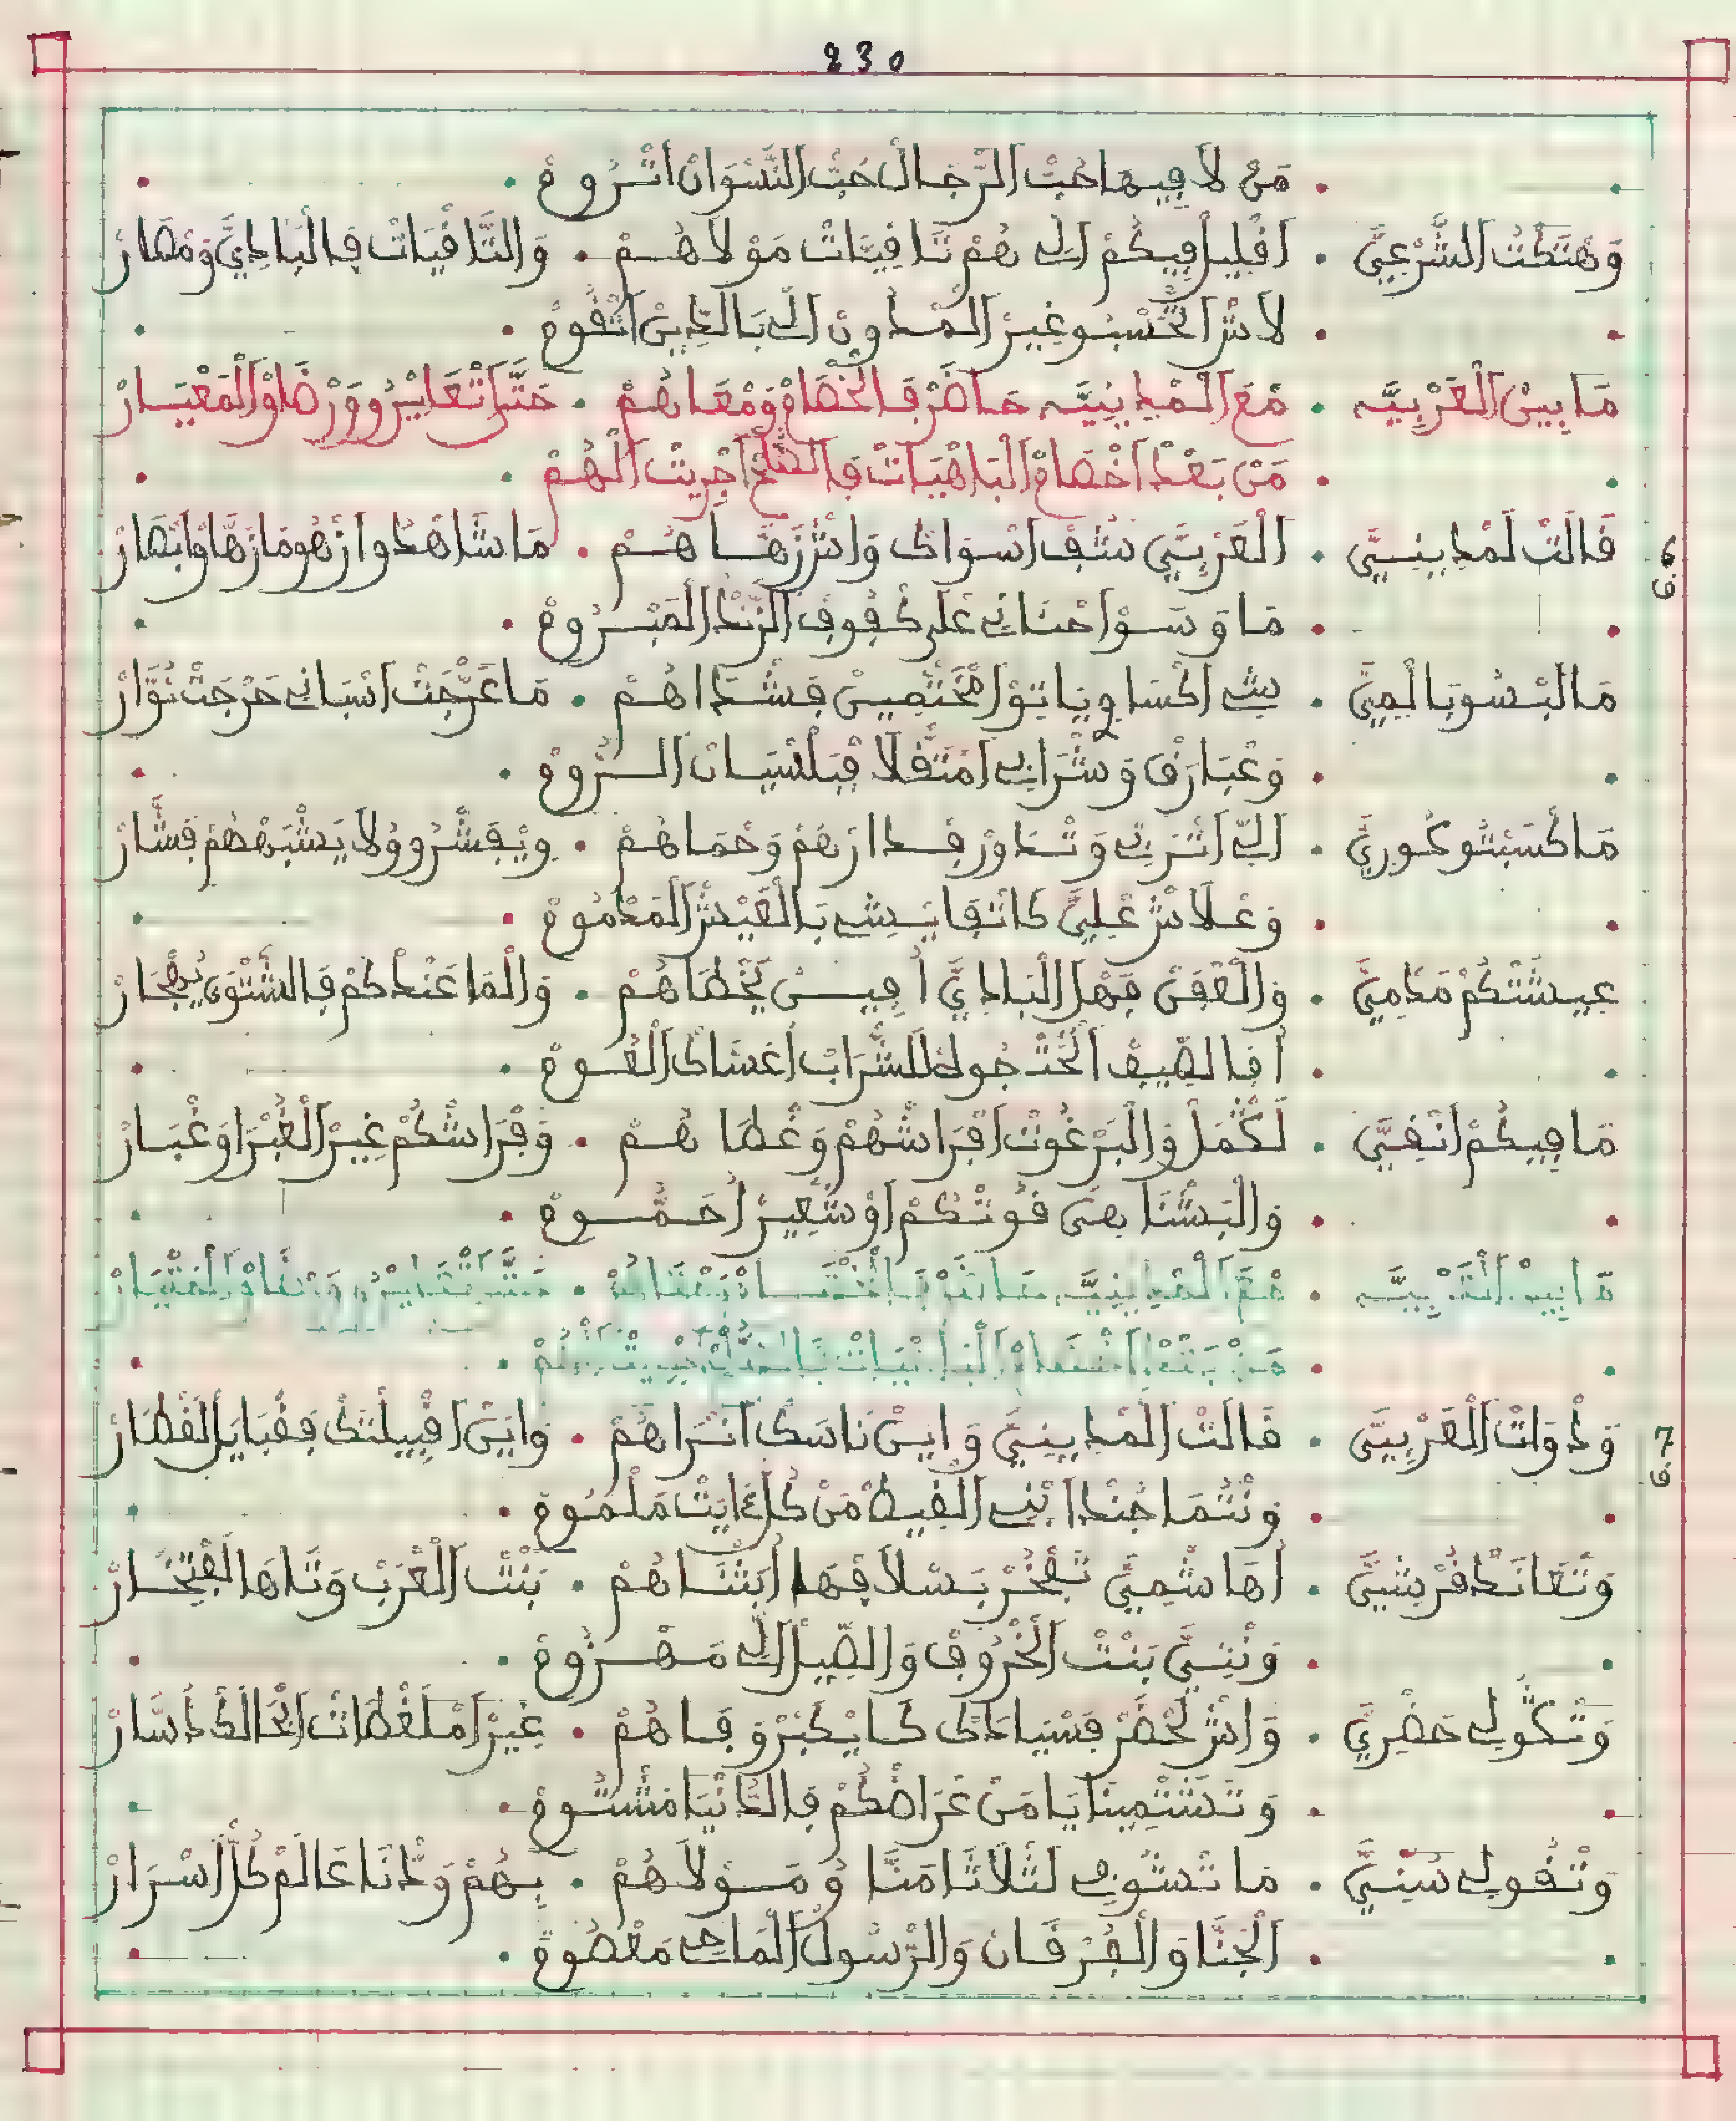 230
مَنْ لَا فِيهَا حُبّْ الرّْجَالْ حُبّْ النَّسْوَانْ اتْرُومْ
وَهْتَكْتْ الشَّرْعِيَّ . اقْلِيلْ فِيكُمْ الِّي هُمْ تَاقِيَّاتْ مَوْلَاهُمْ . وَالتَّاقْيَاتْ فَالْبَادِيَّ وَمْصَارْ
لَاشْ اتْحَسْبُو غِيرْ الْمْدُونْ الِّي بَالدِّينْ اتْقُومْ
مَا بِينْ الْعَرْبِيَّه . مْعَ الْمْدِينِيَّه حَاضَرْ فَالْخْصَامْ وَمْعَاهُمْ . حَتَّى اتْعَايْرُو وَرْضَاوْ الْمَعْيَارْ
مَنْ بَعْدْ اخْصَامْ الْبَاهْيَاتْ فَالصُّلْحْ اجْرِيتْ الْهُمْ
6 ق
قَالَتْ لَمْدِينِيَّ . الْعَرْبِيَّ شُفْ اسْوَاكْ وَاشْ زَهَّاهُمْ . مَا شَاهْدُو ازْهُو مَا زَهَّاوْ ابْصَارْ
مَا وَسُّوْ احْنَانِي عْلَى كْفُوفْ الزَّنْدْ الْمَبْرُومْ
مَا لَبْسُو بَالْمِيَّ . شِي اكْسَاوِي بَاتوْ امْخَتْمِينْ فَشْدَاهُمْ . مَا عَرّْجَتْ اسْبَانِي حَرْجَتْ نُوَّارْ
وَعْبَارَقْ وَشْرَابِي امْتَقْلَا فِيلْسْيَانْ الرُّومْ
مَا كَسْبَتُو كُورِيَّ . الِّي اتْرَبِّي وَتْدَاوَرْ فْدَارْهُمْ وَحْمَاهُمْ . وِيْفَشّْرُو وُلَا يَشْبَهْهُمْ فَشَّارْ
وَعْلَاشْ عْلِيَّ كَاتْفَايَشِي بَالْعَيْشْ الْمَدْمُومْ
عِيشَتْكُمْ مَدْمِيَّ . وَالْعْفَنْ فَهْلْ الْبَادِيَّ افِينْ يَخْطَاهُمْ . وَالْمَا عَنْدْكُمْ فَالشَّتْوَى يُهْجَارْ
أَفَالصِّيفْ الْحَتْجُوكْ لَلشَّرَابْ اعْشَاكْ الْعُومْ
مَا فِيكُمْ انْقِيَّ . لَكْمَلْ وَالْبَرْغُوتْ افْرَاشْهُمْ وَغْطَاهُمْ . وَفْرَاشْكُمْ غِيرْ الْغُبْرَا وَغْبَارْ
وَالْبَشْنَا هِيَ قُوتْكُمْ اوْ شْعِيرْ احَمُّومْ
مَا بِينْ الْعَرْبِيَّه . مْعَ الْمْدِينِيَّه حَاضَرْ فَالْخْصَامْ وَمْعَاهُمْ . حَتَّى اتْعَايْرُو وَرْضَاوْ الْمَعْيَارْ
مَنْ بَعْدْ اخْصَامْ الْبَاهْيَاتْ فَالصُّلْحْ اجْرِيتْ الْهُمْ
7 ق
وَدْوَاتْ الْعَرْبِيَّ . قَالَتْ الْمْدِينِيَّ وَايْنْ نَاسَكْ انْرَاهُمْ . وَايَنْ اقْبِيلْتَكْ فَقْبَايَلْ لَقْطَارْ
وَنْتُمَا جُنْدْ ابْنِي الْقِيطْ مَنْ كُلّْ ايَتْ مَلْمُومْ
وَتْعَانَدْ قُرْشِيَّ . اهَاشْمِيَّ تَفْخَرْ بَسْلَافْهَا ابْتْنَاهُمْ . بَنْتْ الْعْرَبْ وَتَاهَا لَفْتِخَارْ
وَنْتِيَّ بَنْتْ الْخْرُوفْ وَالصِّيلْ الِّي مَهْزُومْ
وَتْكُولِي حَضْرِيَّ . وَاشْ لَحْضَرْ فَسْيَادَكْ كَايْكَبْرُو فَاهُمْ . غِيرْ امْلَغْطَاتْ الْحَالَكْ دَسَّارْ
وَتْشَتْمِينَا يَا مَنْ عَرَاضْكُمْ فَالدَّنْيَا مَشْتُومْ
وَتْقُولِي سُنِّيَّ . مَا تَسْوِي لَثْلَاثَا مَنَّا وُمَوْلَاهُمْ . بِهُمْ وَدّْنَا عَالَمْ كُلّْ اسْرَارْ
الْجَنَّا وَالْفُرْقَانْ وَالرَّسُولْ الْمَاحِي مَعْصُومْ